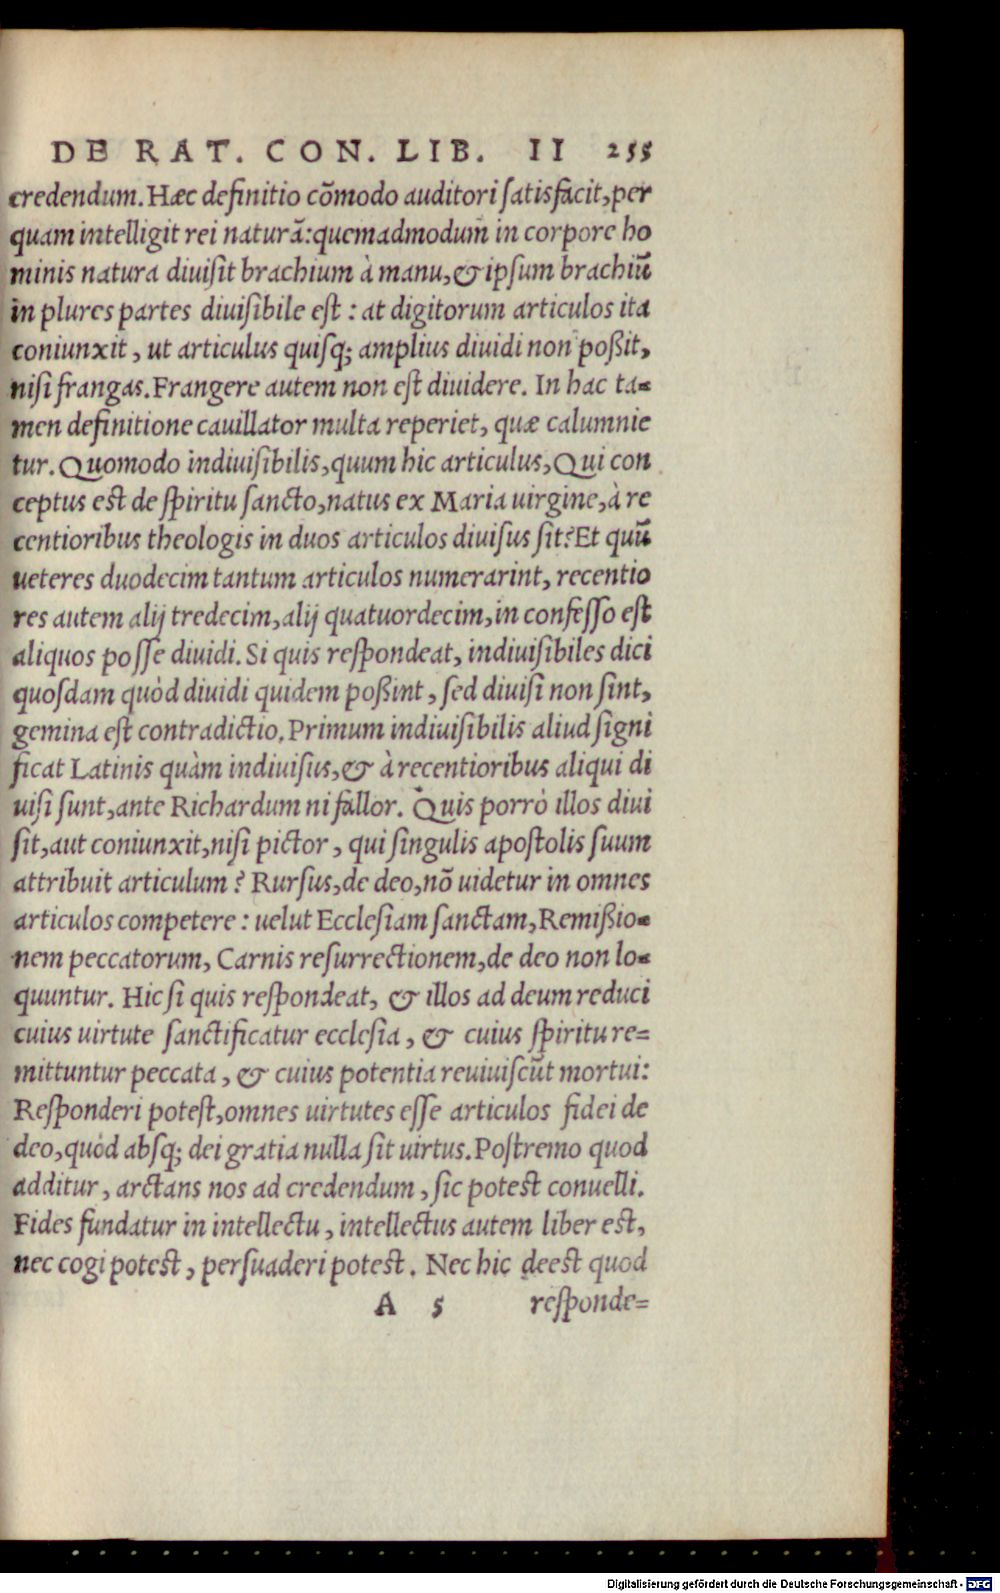 DE RAT. CON. LIB. II 255
credendum. Hæc definitio cõmodo auditori ſatisfacit, per
quam intelligit rei naturã: quemadmodum in corpore ho
minis natura diuiſit brachium à manu, & ipſum brachiũ
in plures partes diuiſibile eſt : at digitorum articulos ita
coniunxit, ut articulus quiſq; amplius diuidi non poßit,
niſi frangas. Frangere autem non eſt diuidere. In hac ta-
men definitione cauillator multa reperiet, quæ calumnie
tur. Quomodo indiuiſibilis, quum hic articulus, Qui con
ceptus eſt de ſpiritu ſancto, natus ex Maria uirgine, à re
centioribus theologis in duos articulos diuiſus ſit? Et quũ
ueteres duodecim tantum articulos numerarint, recentio
res autem alij tredecim, alij quatuordecim, in confeſſo eſt
aliquos poſſe diuidi. Si quis reſpondeat, indiuiſibiles dici
quoſdam quòd diuidi quidem poßint, ſed diuiſi non ſint,
gemina eſt contradictio. Primum indiuiſibilis aliud ſigni
ficat Latinis quàm indiuiſus, & à recentioribus aliqui di
uiſi ſunt, ante Richardum ni fallor. Quis porrò illos diui
ſit, aut coniunxit, niſi pictor, qui ſingulis apoſtolis ſuum
attribuit articulum? Rurſus, de deo, nõ uidetur in omnes
articulos competere : uelut Eccleſiam ſanctam, Remißio-
nem peccatorum, Carnis reſurrectionem, de deo non lo-
quuntur. Hic ſi quis reſpondeat, & illos ad deum reduci
cuius uirtute ſanctificatur eccleſia, & cuius ſpiritu re=
mittuntur peccata, & cuius potentia reuiuiſcũt mortui:
Reſponderi poteſt, omnes uirtutes eſſe articulos fidei de
deo, quòd abſq; dei gratia nulla ſit uirtus. Poſtremo quod
additur, arctans nos ad credendum, ſic poteſt conuelli.
Fides fundatur in intellectu, intellectus autem liber eſt,
nec cogi poteſt, perſuaderi poteſt. Nec hic deest quod
A 5 reſponde=
Digitalisierung gefördert durch die Deutsche Forschungsgemeinschaft - DFG